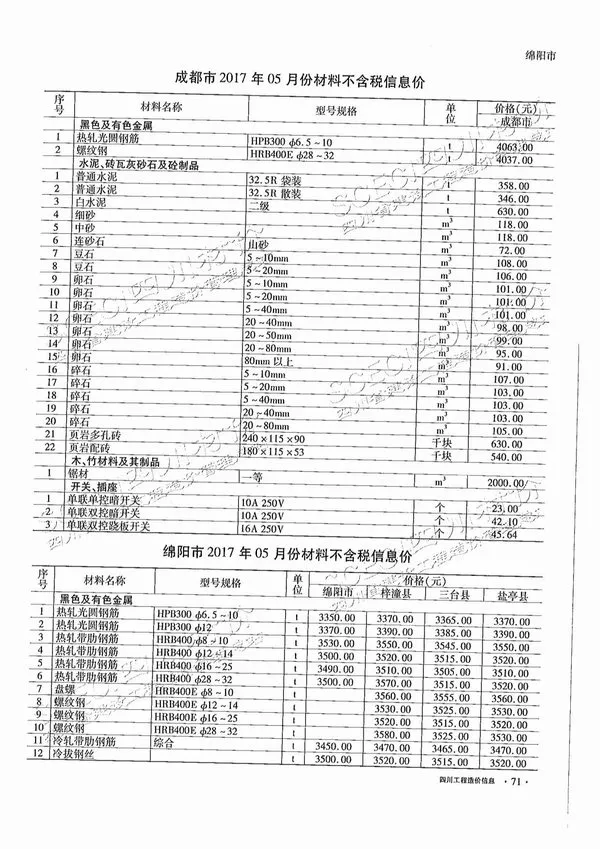 绵阳市
成都市 2017 年 05 月份材料不含税信息价
序号 材料名称 型号规格 单位 价格(元)
成都市
黑色及有色金属
1 热轧光圆钢筋 HPB300 φ6.5~10 t 4063.00
2 螺纹钢 HRB400E φ28~32 t 4037.00
水泥、砖瓦灰砂石及砼制品
1 普通水泥 32.5R 袋装 t 358.00
2 普通水泥 32.5R 散装 t 346.00
3 白水泥 二级 t 630.00
4 细砂 m³ 118.00
5 中砂 m³ 118.00
6 连砂石 山砂 m³ 72.00
7 豆石 5~10mm m³ 108.00
8 豆石 5~20mm m³ 106.00
9 卵石 5~10mm m³ 101.00
10 卵石 5~20mm m³ 101.00
11 卵石 5~40mm m³ 101.00
12 卵石 20~40mm m³ 98.00
13 卵石 20~50mm m³ 99.00
14 卵石 20~80mm m³ 95.00
15 卵石 80mm 以上 m³ 91.00
16 碎石 5~10mm m³ 107.00
17 碎石 5~20mm m³ 103.00
18 碎石 5~40mm m³ 103.00
19 碎石 20~40mm m³ 103.00
20 碎石 20~80mm m³ 105.00
21 页岩多孔砖 240×115×90 千块 630.00
22 页岩配砖 180×115×53 千块 540.00
木、竹材料及其制品
1 锯材 一等 m³ 2000.00
开关、插座
1 单联单控暗开关 10A 250V 个 23.00
2 单联双控暗开关 10A 250V 个 42.10
3 单联双控跷板开关 16A 250V 个 45.64
绵阳市 2017 年 05 月份材料不含税信息价
序号 材料名称 型号规格 单位 价格(元)
绵阳市 梓潼县 三台县 盐亭县
黑色及有色金属
1 热轧光圆钢筋 HPB300 φ6.5~10 t 3350.00 3370.00 3365.00 3370.00
2 热轧光圆钢筋 HPB300 φ12 t 3370.00 3390.00 3385.00 3390.00
3 热轧带肋钢筋 HRB400 φ8~10 t 3530.00 3550.00 3545.00 3550.00
4 热轧带肋钢筋 HRB400 φ12~14 t 3500.00 3520.00 3515.00 3520.00
5 热轧带肋钢筋 HRB400 φ16~25 t 3490.00 3510.00 3505.00 3510.00
6 热轧带肋钢筋 HRB400 φ28~32 t 3500.00 3570.00 3515.00 3520.00
7 盘螺 HRB400E φ8~10 t 3560.00 3555.00 3560.00
8 螺纹钢 HRB400E φ12~14 t 3530.00 3525.00 3530.00
9 螺纹钢 HRB400E φ16~25 t 3520.00 3515.00 3520.00
10 螺纹钢 HRB400E φ28~32 t 3580.00 3525.00 3530.00
11 冷轧带肋钢筋 综合 t 3450.00 3470.00 3465.00 3470.00
12 冷拔钢丝 t 3500.00 3520.00 3515.00 3520.00
四川工程造价信息 ·71·